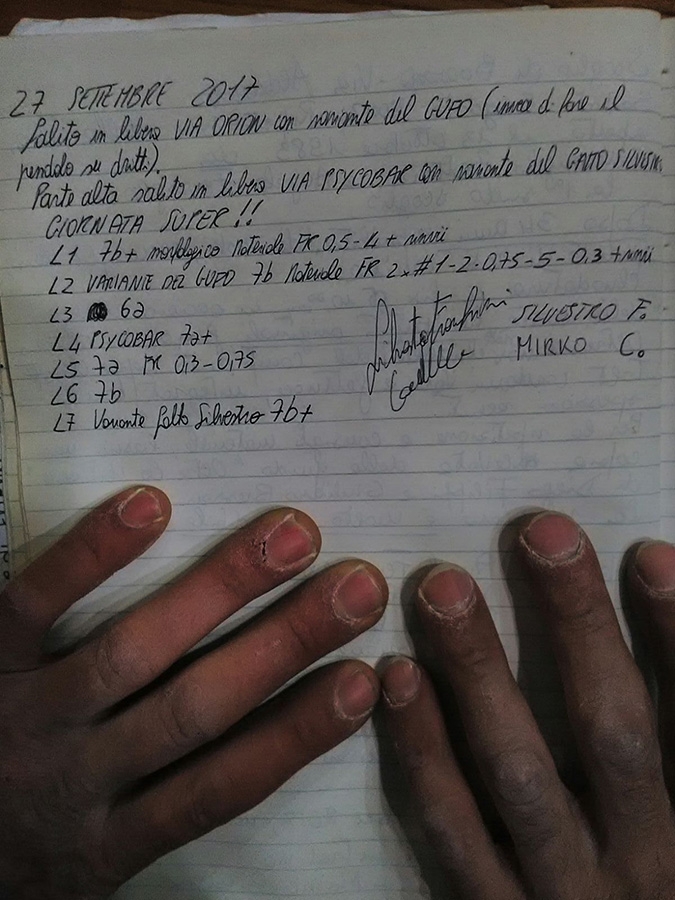 27 SETTEMBRE 2017
Salito in libero VIA ORION con variante del GUFO (invece di fare il
pendolo su dritti).
Parte alta salito in libero VIA PSYCOBAR con variante del GATTO SILVESTRO
GIORNATA SUPER!!
L1 7b+ morfologico Materiale FR 0,5-4 + nuvii
L2 VARIANTE DEL GUFO 7b Materiale FR 2x#1-2-0,75-5-0,3 + nuvii
L3 6a
L4 PSYCOBAR 7a+
L5 7a FR 0,3-0,75
L6 7b
L7 Variante Gatto Silvestro 7b+
SILVESTRO F.
MIRKO C.